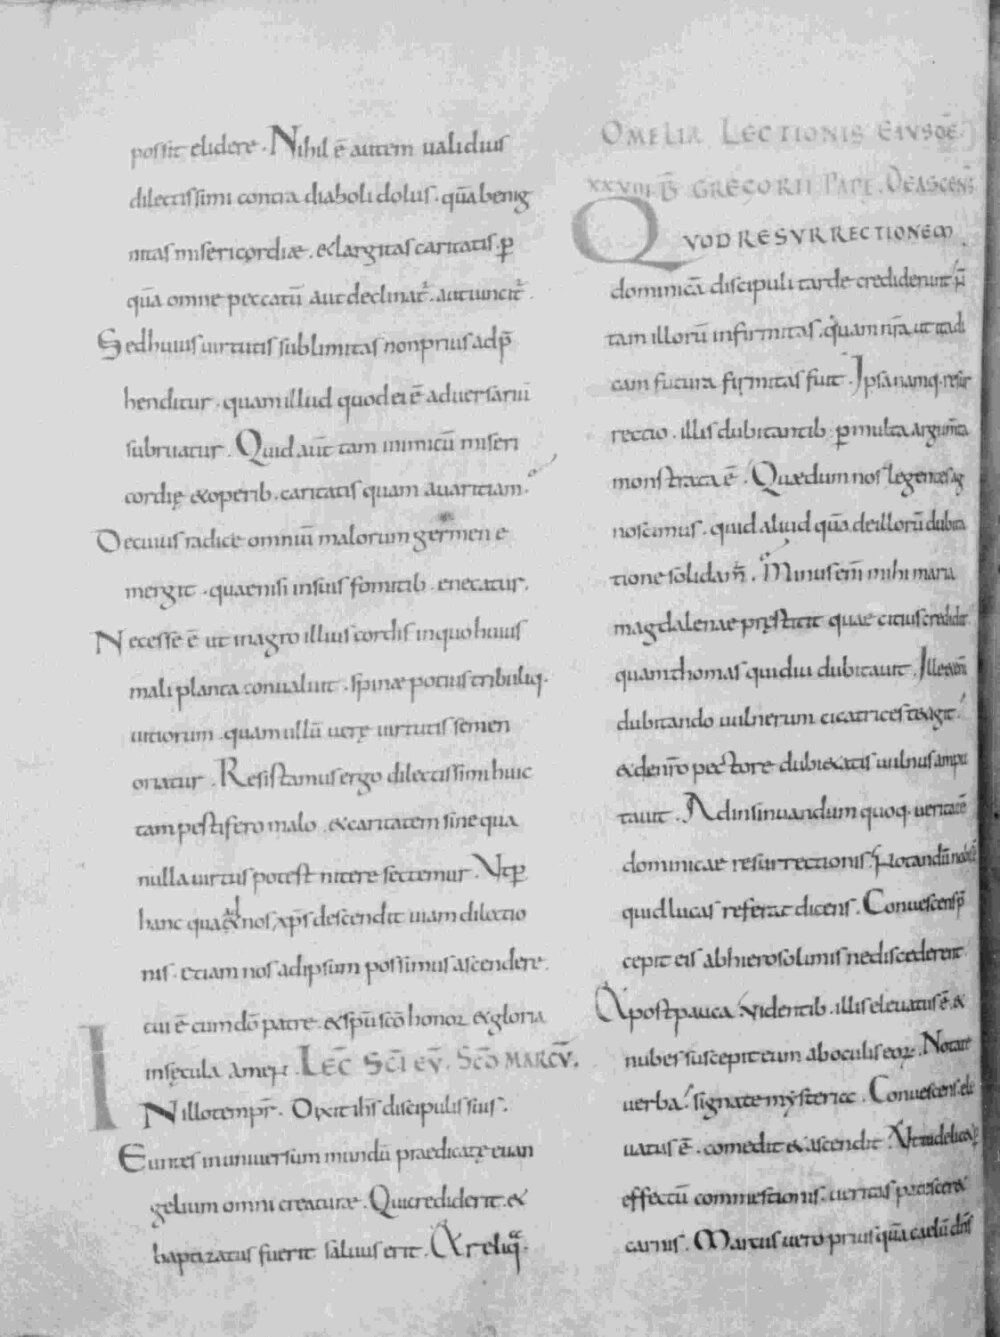 possit elidere. Nihil ē autem ualidius
dilectissimi contra diaboli dolus. quā benig
nitas misericordiæ. & largitas caritatis. ꝑ
quā omne peccatū aut declinat᷑. aut uincit᷑.
Sed huius uirtutis sublimitas non prius adp̄
henditur. quam illud quod ei ē aduersariū
subruatur. Quid aūt tam inimicū miseri
cordię & operib. caritatis quam auaritiam.
De cuius radice omniū malorum germen e
mergit. quae nisi in suis fomitib. enecatur.
Necesse ē ut in agro illius cordis in quo huius
mali planta conualuit. spinæ potius tribuliq.
uitiorum. quam ullū uerę uirtutis semen
oriatur. Resistamus ergo dilectissimi huic
tam pestifero malo. & caritatem sine qua
nulla uirtus potest nitere sectemur. Ut ꝑ
hanc qua & ad nos xp̄s descendit uiam dilectio
nis. etiam nos ad ipsum possimus ascendere.
cui ē cum dō patre. & sp̄u scō honor & gloria
in sęcula amen. LEC̄ SC̄I EV̄. SC̄O MARCV̄.
IN illo temp̄r. Dixit ih̄s discipulis suis.
Euntes in uniuersum mundū praedicate euan
gelium omni creaturæ. Qui crediderit. &
baptizatus fuerit saluus erit. Et reliq̄.
OMELIA LECTIONIS EIVSQĒ.
XXVIIII B̄ GREGORII PAPĘ. DE ASCENS̄
QVOD RESVRRECTIONEM
dominicā discipuli tarde crediderunt
tam illorū infirmitas. quam nr̄a ut ita di
cam futura firmitas fuit. Ipsa namq. resur
rectio. illis dubitantib. ꝑ multa argum̄ta
monstrata ē. Quæ dum nos legentes ag
noscimus. quid aliud quā de illorū dubita
tione solidam̄. Minus em̄ mihi maria
magdalenae pręstitit quae citius credidit
quam thomas qui diu dubitauit. Ille etem̄
dubitando uulnerum cicatrices tetigit.
& de nr̄o pectore dubietatis uulnus ampu
tauit. Ad insinuandum quoq. ueritatē
dominicae resurrectionis. Notandū nobis ē
quid lucas referat dicens. Conuescens p̄
cepit eis ab hierosolimis ne discederent.
Et post pauca. Videntib. illis eleuatus ē. &
nubes suscepit eum ab oculis eoꝝ. Notate
uerba. signate mysteria. Conuescens ele
uatus ē. comedit & ascendit. Ut uidelicet ꝑ
effectū commestionis. ueritas patescer&
carnis. Marcus uero prius quā caelū dn̄s